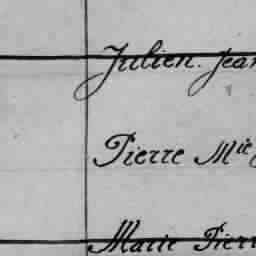 Julien. Jean
Pierre Mie
Marie Pierr